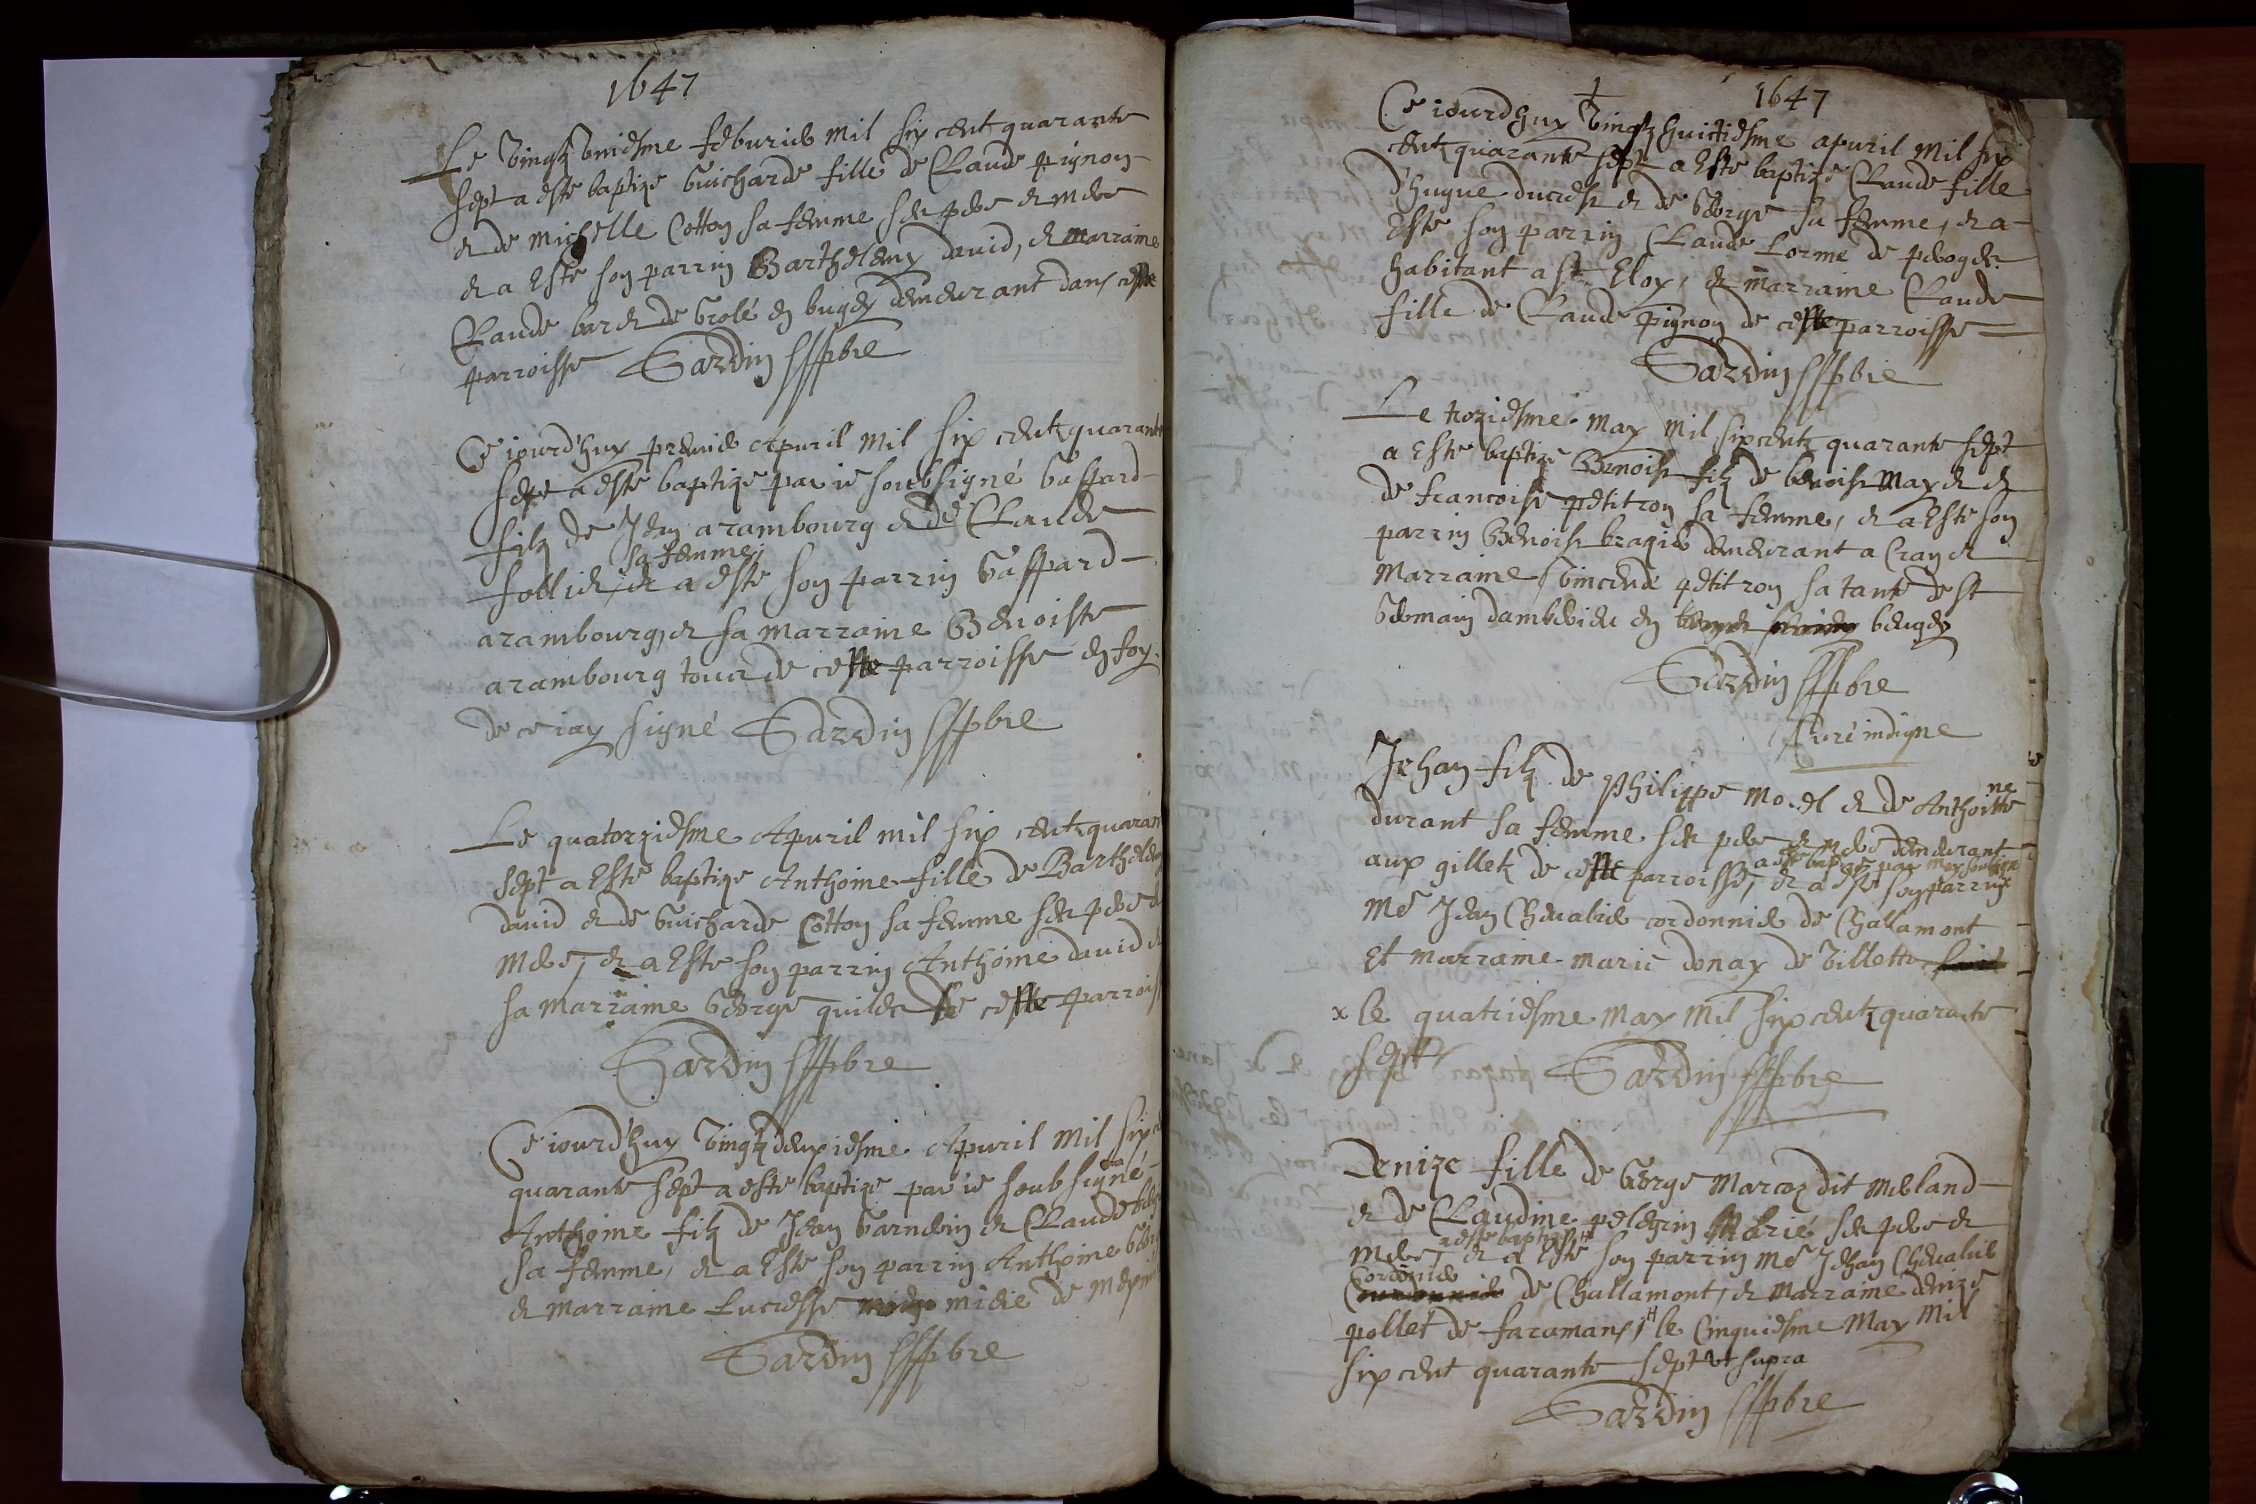 1647
Le vingt uniesme feburier mil six centz quarante
sept a esté baptizé Guicharde fille de Claude pignon
et de michelle Cotton sa femme ses pere et mere
et a Esté son parrin Barthelemy david, et marraine
Claude bar et de Grolé en bugey demeurant dans ceste
parroisse Sardin pbre
Ce iourd'huy premier Apuril mil six centz quarante
sept a esté baptizé par ie soubsigné Gaspard
filz de Jean arambourg et de Claude
sa femme,
follier, et a esté son parrin Gaspard
arambourg, et sa marraine Benoiste
arambourg tous de ceste parroisse en foy
de ce iay signé Sardin pbre
Le quatorziesme Apuril mil six centz quaran
sept a Esté baptizé Anthoine fille de Barthelemy
david et de Guicharde Cotton sa femme ses pere et
mere, et a Esté son parrin Anthoine david et
sa marraine George de ceste parrois
Sardin pbre
Ce iourd'huy vingt deuxiesme Apuril mil six
quarante sept a esté baptizé par ie soubsigné
Anthoine filz de Jean Garnerin et Claude
sa femme, et a Esté son parrin Anthoine
et marraine Lucresse de
Sardin pbre
1647
Ce iourdhuy vingt huictiesme apuril mil six
centz quarante sept a Esté baptizé Claude fille
d'hugue et de George sa femme, et a
Esté son parrin Claude Lorme de peroges
habitant a st Eloy, et marraine Claude
fille de Claude pignon de ceste parroisse
Sardin pbre
Le troziesme may mil six centz quarante sept
a Esté baptizé Benoist filz de benoist may et
de francoise petitron sa femme, et a Esté son
parrin Benoist bragier demeurant a Cran et
Marraine Vincende petitron sa tante de st
Germain damberieu en beugey
Sardin pbre
Curé indigne
Jehan filz de Philippe morel et de Anthoinne
durant sa femme ses pere et mere demeurant
a esté baptizé par moy soubsigné
aux gilletz de ceste parroisse, et a esté son parrin
Me Jean Chevalier cordonnier de Challamont
Et marraine marie donay de Villette
x le quatriesme may mil six centz quarante
sept Sardin pbre
Denize fille de George Marcoz dit merland
et de Claudine pelegrin Marié ses pere et
a esté baptizé H
mere, et a esté son parrin Me Jehan Chevalier
Cordonnier
de Challamont, et marraine denize
pollet de faramans, H le Cinquiesme May Mil
six cent quarante sept ut supra
Sardin pbre